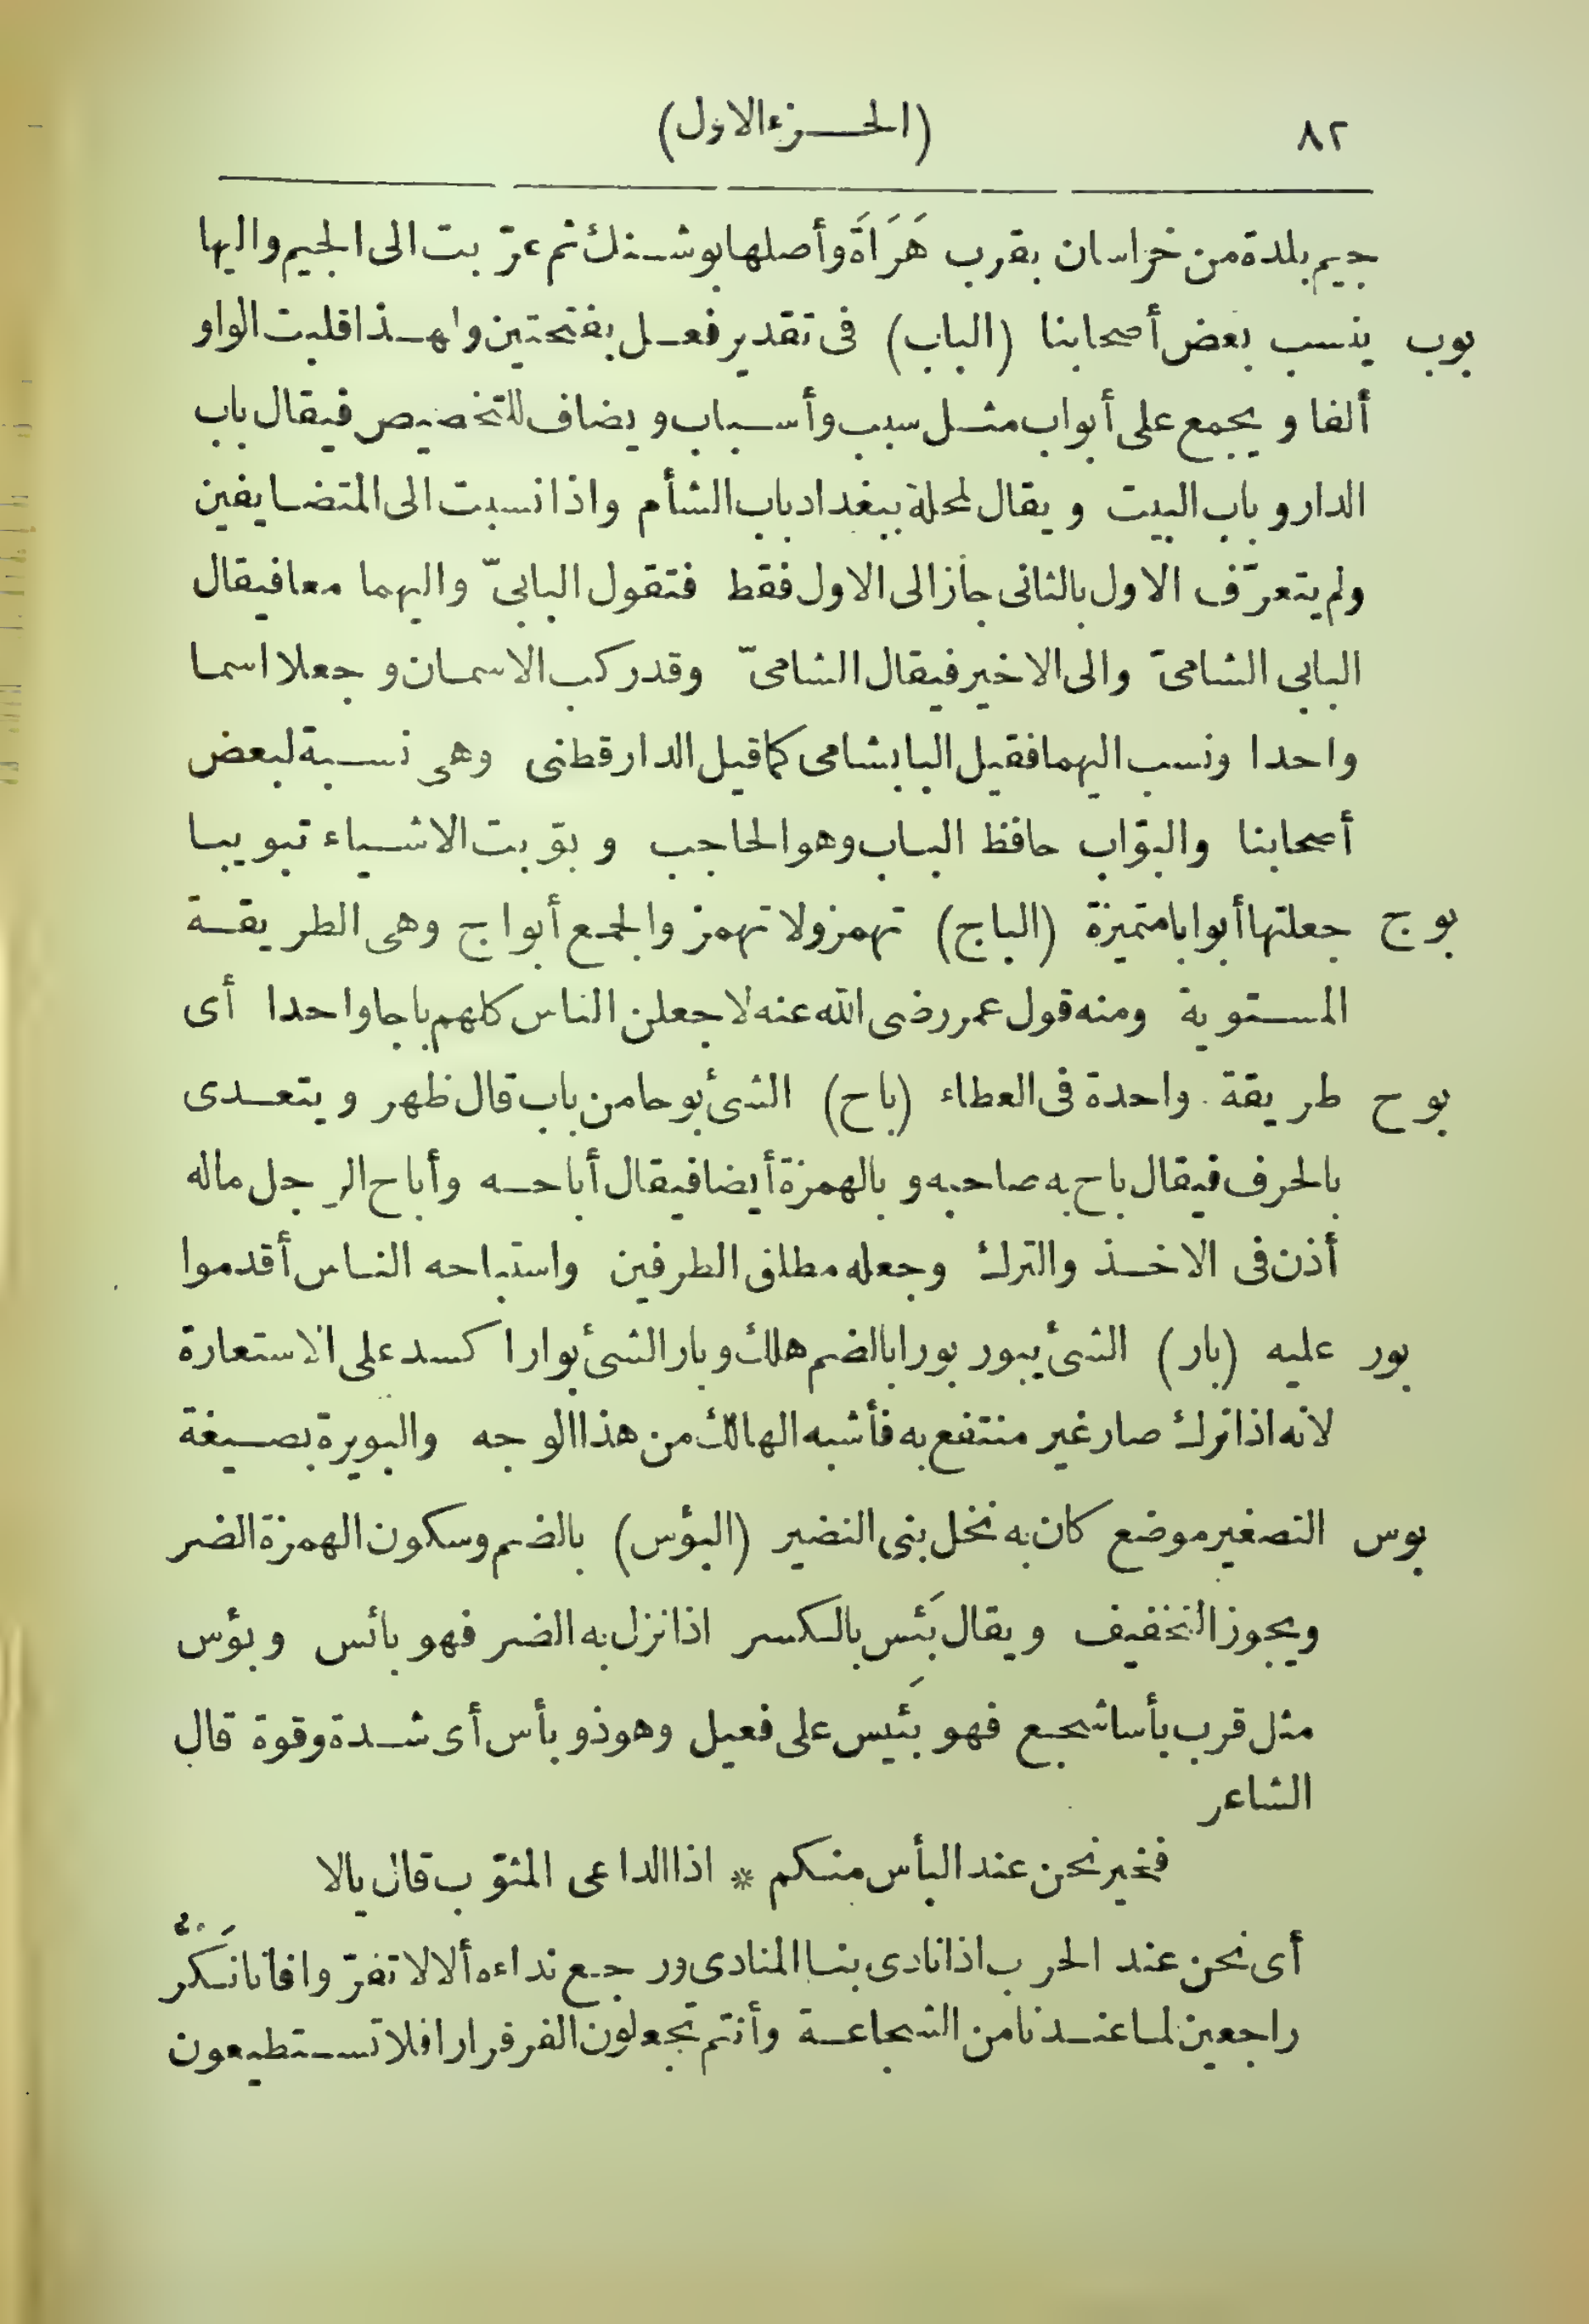 ٨٢ (الجزء الاول)
جيم بلدة من خراسان بقرب هَرَاةَ وأصلها بوشنك ثم عرّبت الى الجيم واليها
بوب ينسب بعض أصحابنا (الباب) فى تقدير فعل بفتحتين ولهذا قلبت الواو
ألفا ويجمع على أبواب مثل سبب وأسباب ويضاف للتخصيص فيقال باب
الدار وباب البيت ويقال لمحلة ببغداد باب الشأم واذا نسبت الى المتضايفين
ولم يتعرّف الاول بالثانى جاز الى الاول فقط فتقول البابىّ واليهما معا فيقال
البابى الشامىّ والى الاخير فيقال الشامىّ وقد ركب الاسمان وجعلا اسما
واحدا ونسب اليهما فقيل البابشامى كما قيل الدارقطنى وهى نسبة لبعض
أصحابنا والبوّاب حافظ الباب وهو الحاجب وبوّبت الاشياء تبويبا
بوج جعلتها أبوابا متميزة (الباج) تهمز ولا تهمز والجمع أبواج وهى الطريقة
المستوية ومنه قول عمر رضى الله عنه لاجعلن الناس كلهم باجا واحدا أى
بوح طريقة واحدة فى العطاء (باح) الشئ بوحا من باب قال ظهر ويتعدى
بالحرف فيقال باح به صاحبه وبالهمزة أيضا فيقال أباحه وأباح الرجل ماله
أذن فى الاخذ والترك وجعله مطلق الطرفين واستباحه الناس أقدموا
بور عليه (بار) الشئ يبور بورا بالضم هلك وبار الشئ بوارا كسد على الاستعارة
لانه اذا ترك صار غير منتفع به فأشبه الهالك من هذا الوجه والبويرة بصيغة
بوس التصغير موضع كان به نخل بنى النضير (البؤس) بالضم وسكون الهمزة الضر
ويجوز التخفيف ويقال بَئس بالكسر اذا نزل به الضر فهو بائس وبؤس
مثل قرب بأسا شجع فهو بَئيس على فعيل وهو ذو بأس أى شدة وقوة قال
الشاعر
فخير نحن عند البأس منكم * اذا الداعى المثوّب قال يالا
أى نحن عند الحرب اذا نادى بنا المنادى ورجع نداءه ألا لا تفرّوا فانا نَكُرّ
راجعين لما عندنا من الشجاعة وأنتم تجعلون الفر فرارا فلا تستطيعون